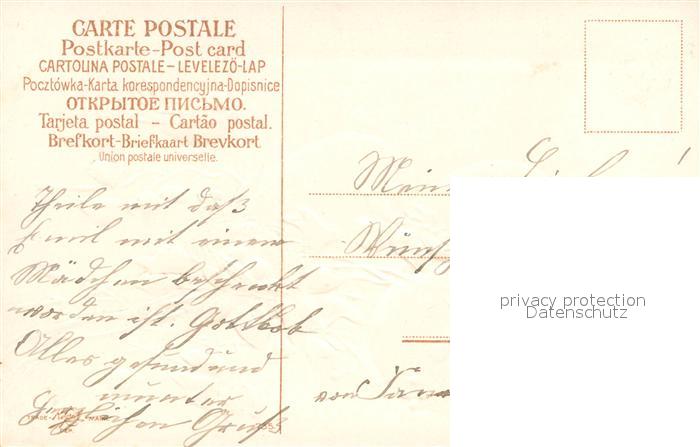 CARTE POSTALE
Postkarte-Post card
CARTOLINA POSTALE-LEVELEZŐ-LAP
Pocztówka-Karta korespondencyjna-Dopisnice
ОТКРЫТОЕ ПИСЬМО.
Tarjeta postal - Cartão postal.
Brefkort-Briefkaart Brevkort
Union postale universelle.
Theile mit daß
Emil mit einem
Mädchen beschenkt
worden ist. Gottlob
Alles gesund und
munter
Herzlichen Gruß
Wünsch
von
privacy protection
Datenschutz